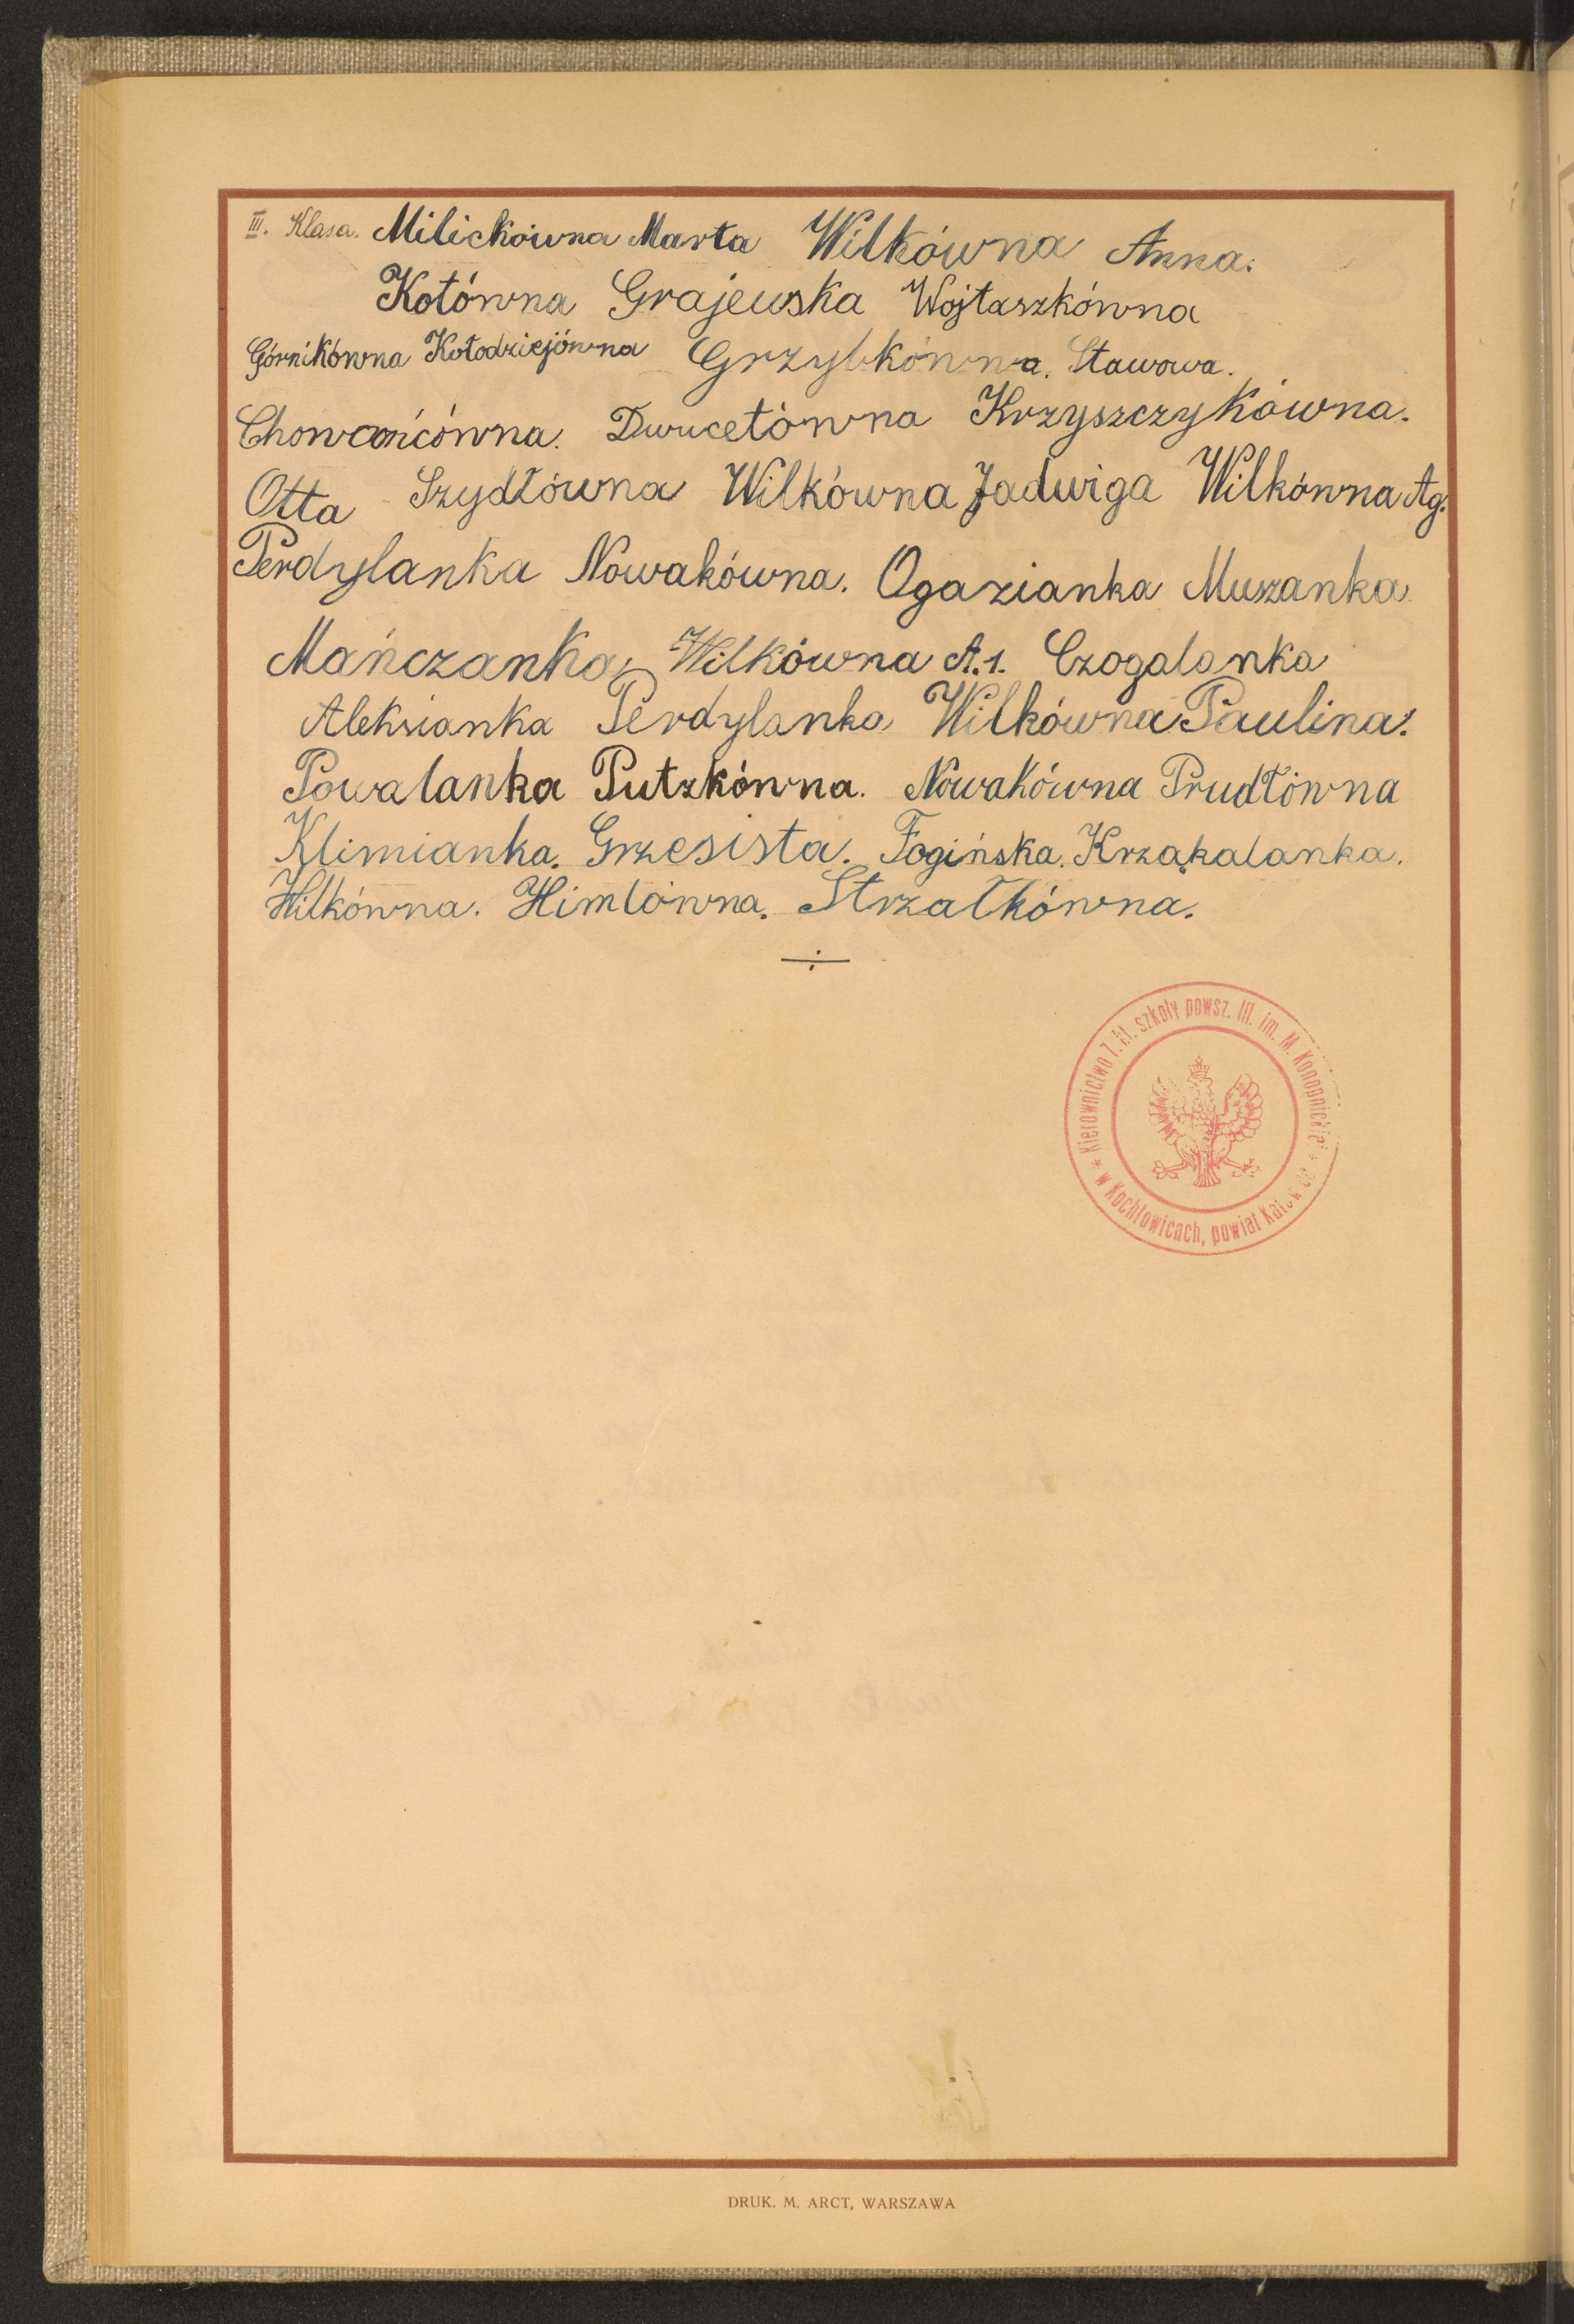 III. Klasa. Milickówna Marta Wilkówna Anna.
Kotówna Grajewska Wojtaszkówna
Górnikówna Kołodziejówna Grzybkówna. Stawowa.
Chowańcówna. Dwucetówna Krzyszczykówna.
Otta Szydłówna Wilkówna Jadwiga Wilkówna Ag.
Perdylanka Nowakówna. Ogazianka Muszanka
Mańczanka Wilkówna A.1. Czogalanka
Aleksianka Perdylanka Wilkówna Paulina.
Powalanka Putzkówna. Nowakówna Prudłówna
Klimianka. Grzesista. Fogińska. Krząkalanka.
Wilkówna. Himlówna. Strzałkówna.
* Kierownictwo 7. kl. szkoły powsz. III. im. M. Konopnickiej *
w Kochłowicach, powiat
DRUK. M. ARCT, WARSZAWA